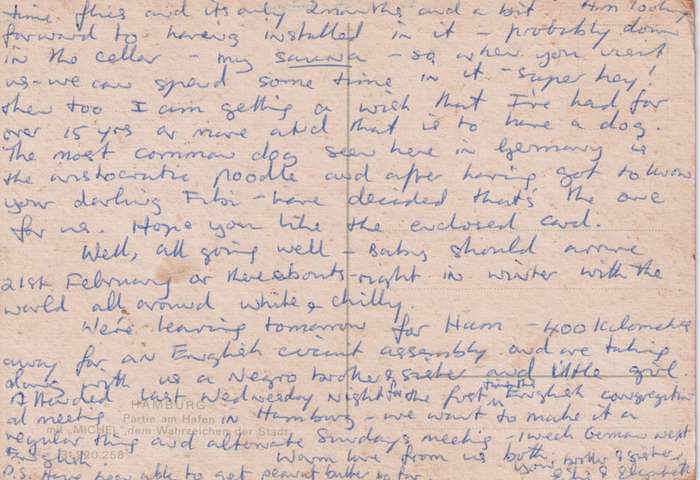 time flies and its only 2 months and a bit Am looking
forward to having installed in it - probably down
in the cellar - my sauna - so when you visit
us - we can spend some time in it - super hey!
then too I am getting a wish that I've had for
over 15 yrs or more and that is to have a dog.
The most common dog seen here in Germany is
the aristocratic poodle and after having got to know
your darling Fifi - have decided that's the one
for us. Hope you like the enclosed card.
Well, all going well - Baby should arrive
21st February or thereabouts - right in winter with the
world all around white & chilly.
We're leaving tomorrow for Ham - 400 kilometres
away for an English circuit assembly and are taking
along with us a Negro brother & sister and little girl
Attended last Wednesday night for the first time this English congregation
HAMBURG
al meeting in Hamburg - we want to make it a
Partie am Hafen
mit „MICHEL", dem Wahrzeichen der Stadt
regular thing and alternate Sundays meeting - 1 week German next
English. Warm love from us both
20.258
your brother & sister,
P.S. Have been able to get peanut butter so far & Elizabeth